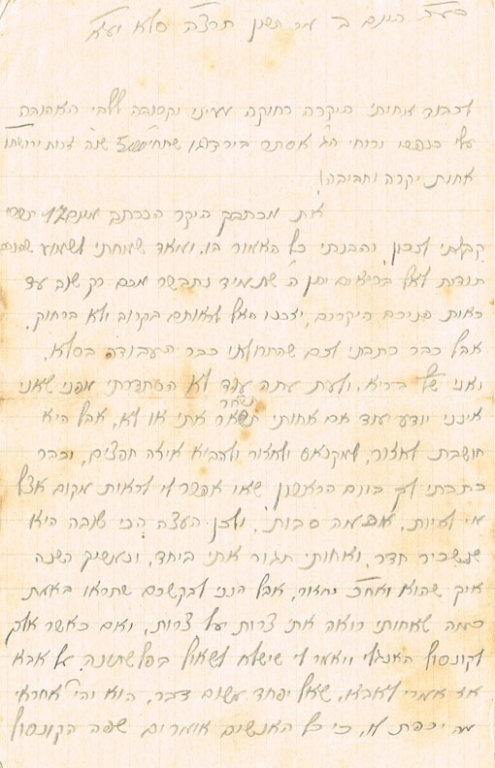 בע״ה היום ב׳ מר חשון תרצ״ה סלא יע״א
לכבוד אחותי היקרה רחוקה מעיני וקרובה ללבי האהובה
עלי כנפשי ורוחי הג׳ אסתר בירדוגו שתחי׳ שנה
אחות יקרה וחביבה!
את מכתבך היקר הנכתב מיום 17 תשרי
קבלתי לנכון, והבנתי כל האמור בו, ומאד שמחתי לשמוע
תודות לאל בריאים יתן ה׳ שתמיד נתבשר מכם רק טוב עד
ראות פניכם היקרים, יזכנו האל לראותם בקרוב ולא ברחוק.
אבל כבר כתבתי לכם שהתחלתי כבר העבודה בסלא,
ואני בריא, ולעת עתה עוד לא הסתדרתי מפני שאני
אינני יודע עוד אם אחותי תשאר אתי או לא, אבל היא
תשאר
חושבת לחזור, למקנאס ולחזור ולהביא איזה חפצים, וכבר
כתבתי לך ביום הראשון שאי אפשר לי לראות מקום אצל
מי להיות, מכמה סבות, ולכן העצה הכי טובה היא
שנשכיר חדר, ואחותי תגור אתי ביחד, וכמשיך השנה
איך שהוא ואח״כ נחזור, אבל הנני לבקשכם שתראו באמת
כמה שאחותי רואה אתי צרות על צרות, ואם כאשר אלך
לקונסול האנגלי ויאמר לי שישלח לשאול בפלשתינה על אבא
אז אמרי לאבא, שאל יפחד משום דבר, הוא
מה יכפת לו, כי כל האנשים אומרים שפה הקונסול